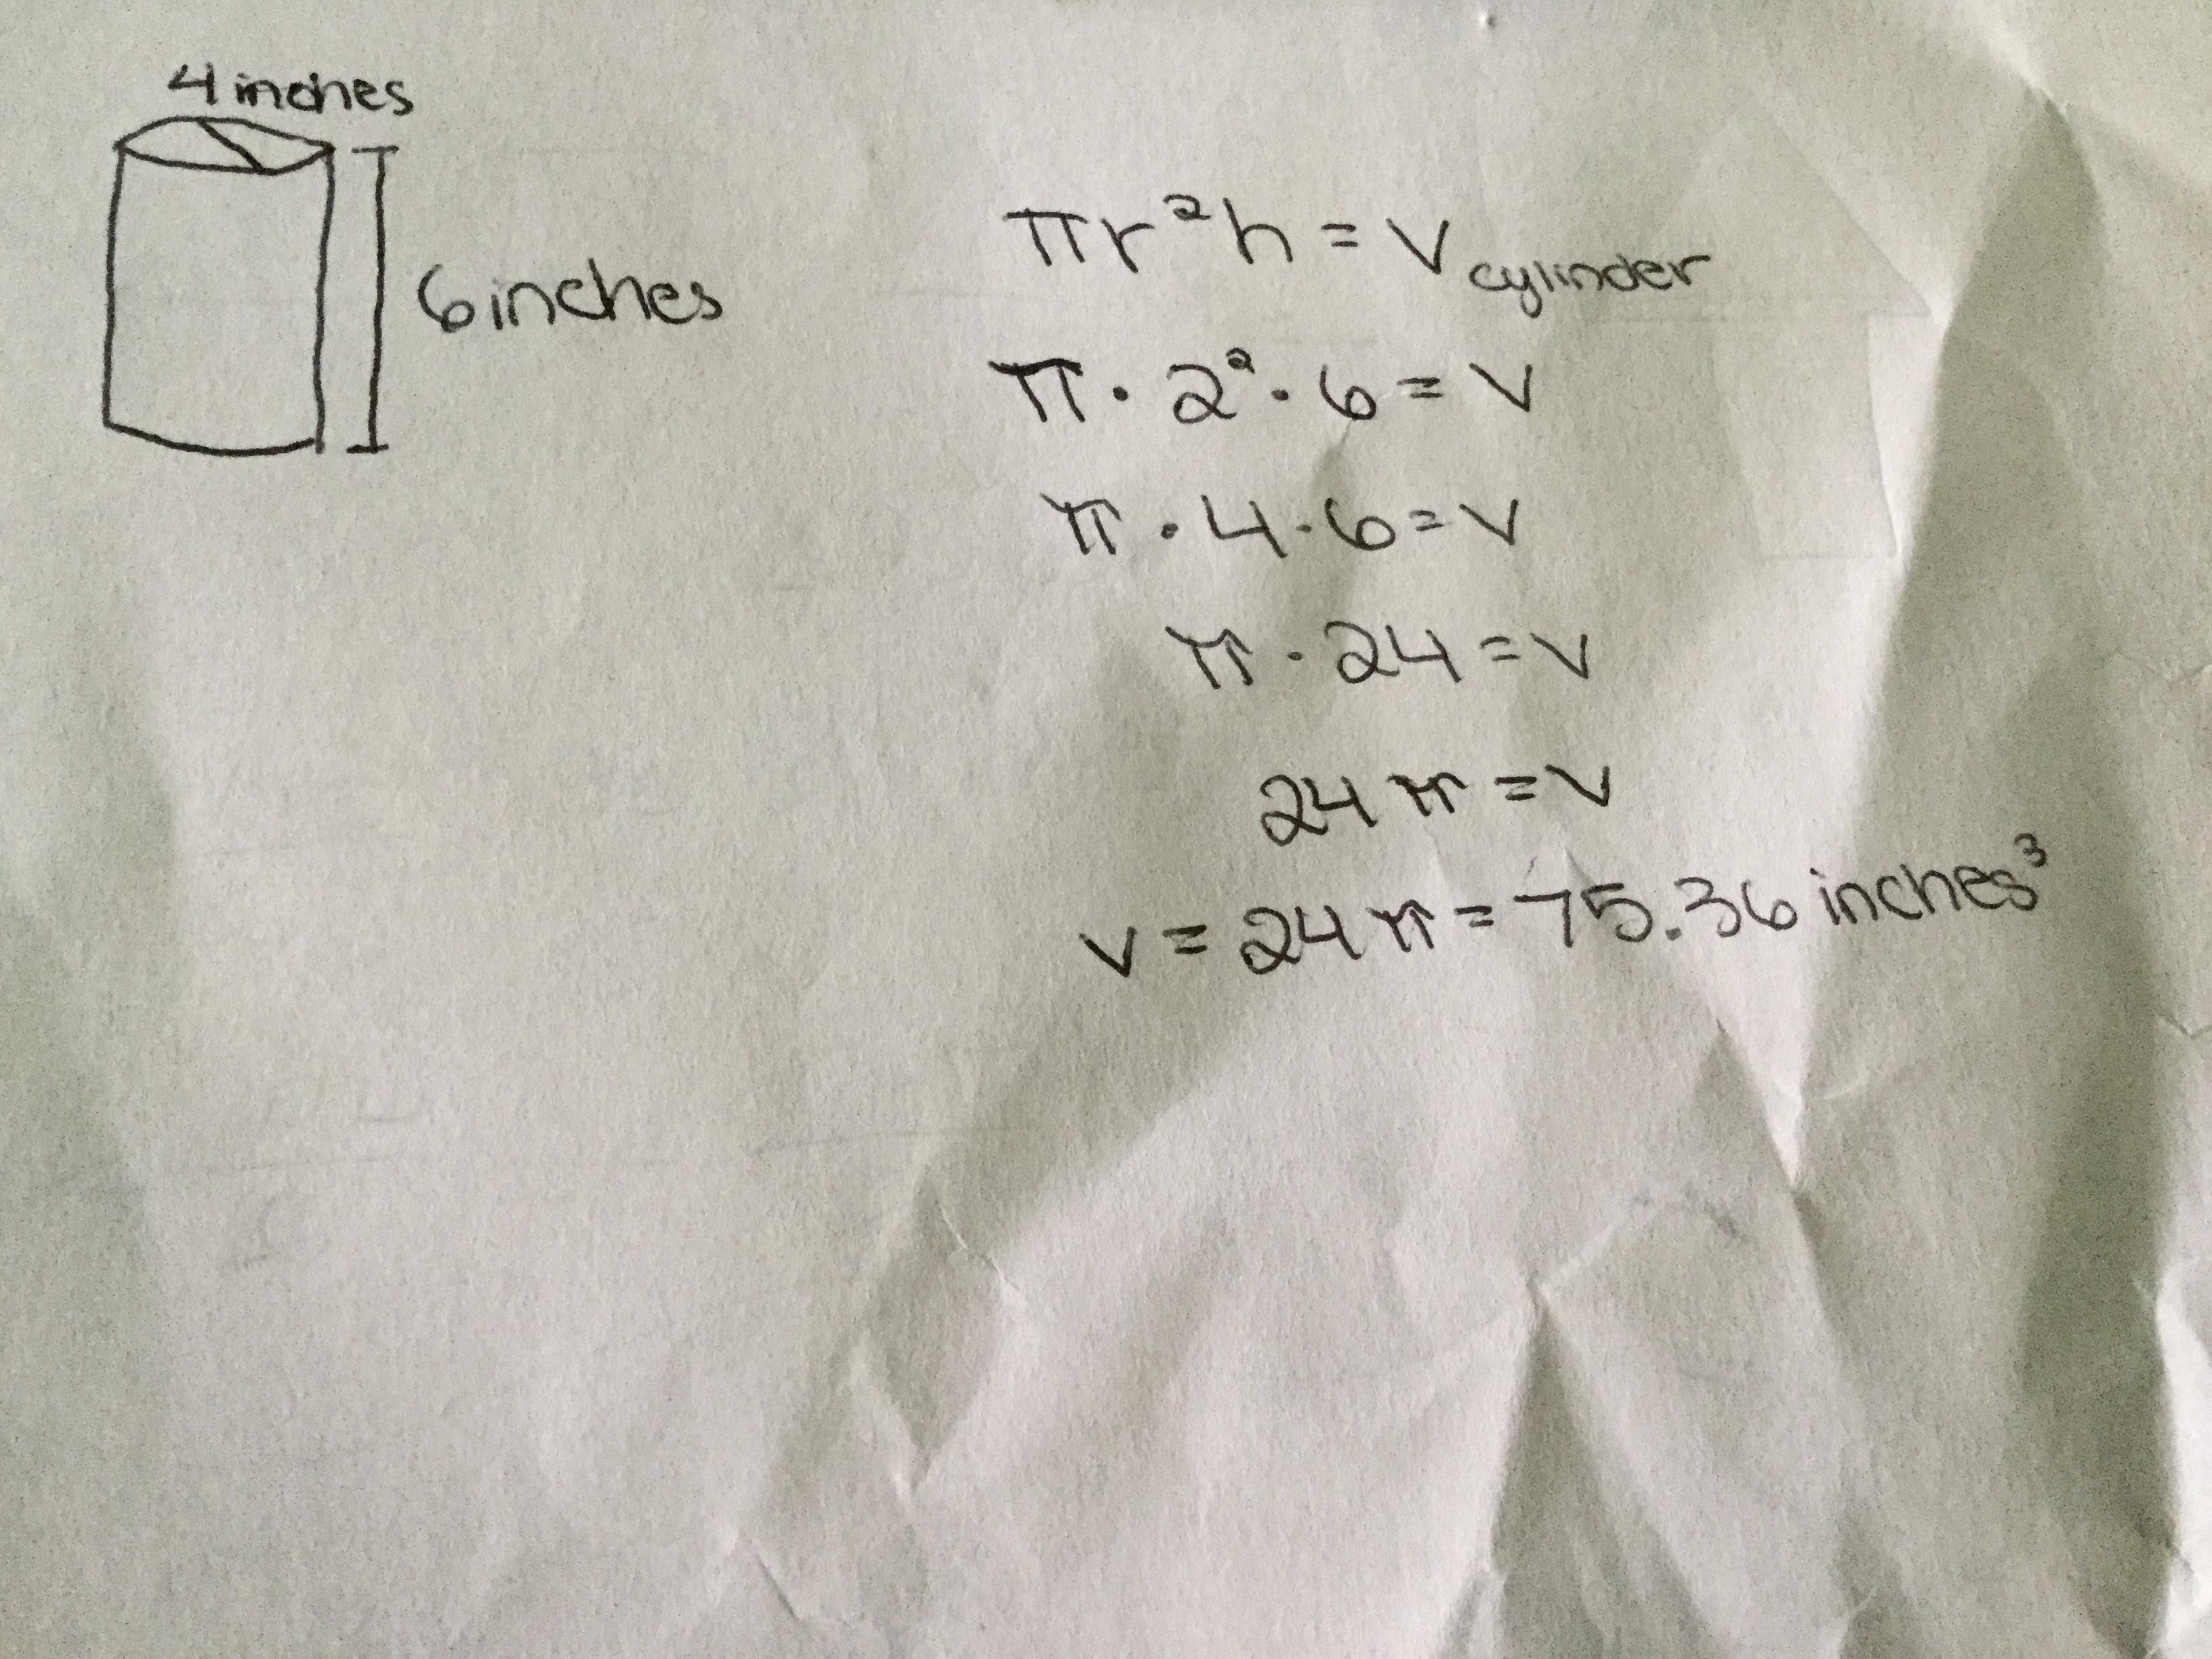 4 inches
6 inches
πr²h = V cylinder
π · 2² · 6 = V
π · 4 · 6 = V
π · 24 = V
24π = V
V = 24π = 75.36 inches³